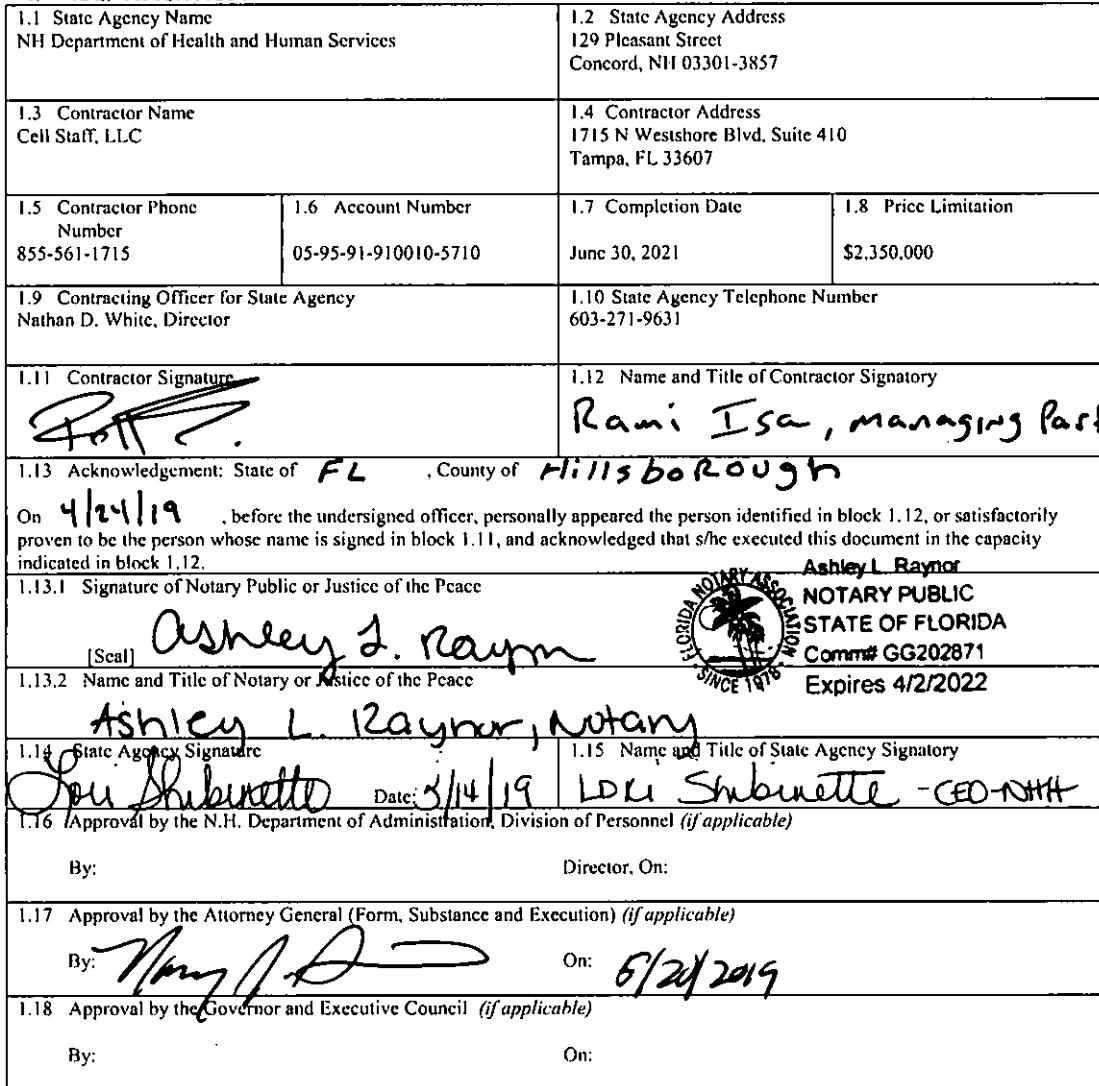 1.1 State Agency Name
NH Department of Health and Human Services
1.2 State Agency Address
129 Pleasant Street
Concord, NH 03301-3857
1.3 Contractor Name
Cell Staff, LLC
1.4 Contractor Address
1715 N Westshore Blvd, Suite 410
Tampa, FL 33607
1.5 Contractor Phone
Number
855-561-1715
1.6 Account Number
05-95-91-910010-5710
1.7 Completion Date
June 30, 2021
1.8 Price Limitation
$2,350,000
1.9 Contracting Officer for State Agency
Nathan D. White, Director
1.10 State Agency Telephone Number
603-271-9631
1.11 Contractor Signature
1.12 Name and Title of Contractor Signatory
Rami Isa, managing Part
1.13 Acknowledgement: State of FL , County of HillsboRough
On 4/24/19 , before the undersigned officer, personally appeared the person identified in block 1.12, or satisfactorily
proven to be the person whose name is signed in block 1.11, and acknowledged that s/he executed this document in the capacity
indicated in block 1.12.
1.13.1 Signature of Notary Public or Justice of the Peace
Ashley L. Raynor
[Seal]
FLORIDA NOTARY ASSOCIATION
SINCE 1978
Ashley L. Raynor
NOTARY PUBLIC
STATE OF FLORIDA
Comm# GG202871
Expires 4/2/2022
1.13.2 Name and Title of Notary or Justice of the Peace
Ashley L. Raynor, Notary
1.14 State Agency Signature
Lori Shibinette Date: 5/14/19
1.15 Name and Title of State Agency Signatory
LORI Shibinette - CEO-NHH
1.16 Approval by the N.H. Department of Administration, Division of Personnel (if applicable)
By: Director, On:
1.17 Approval by the Attorney General (Form, Substance and Execution) (if applicable)
By: On:
1.18 Approval by the Governor and Executive Council (if applicable)
By: On: